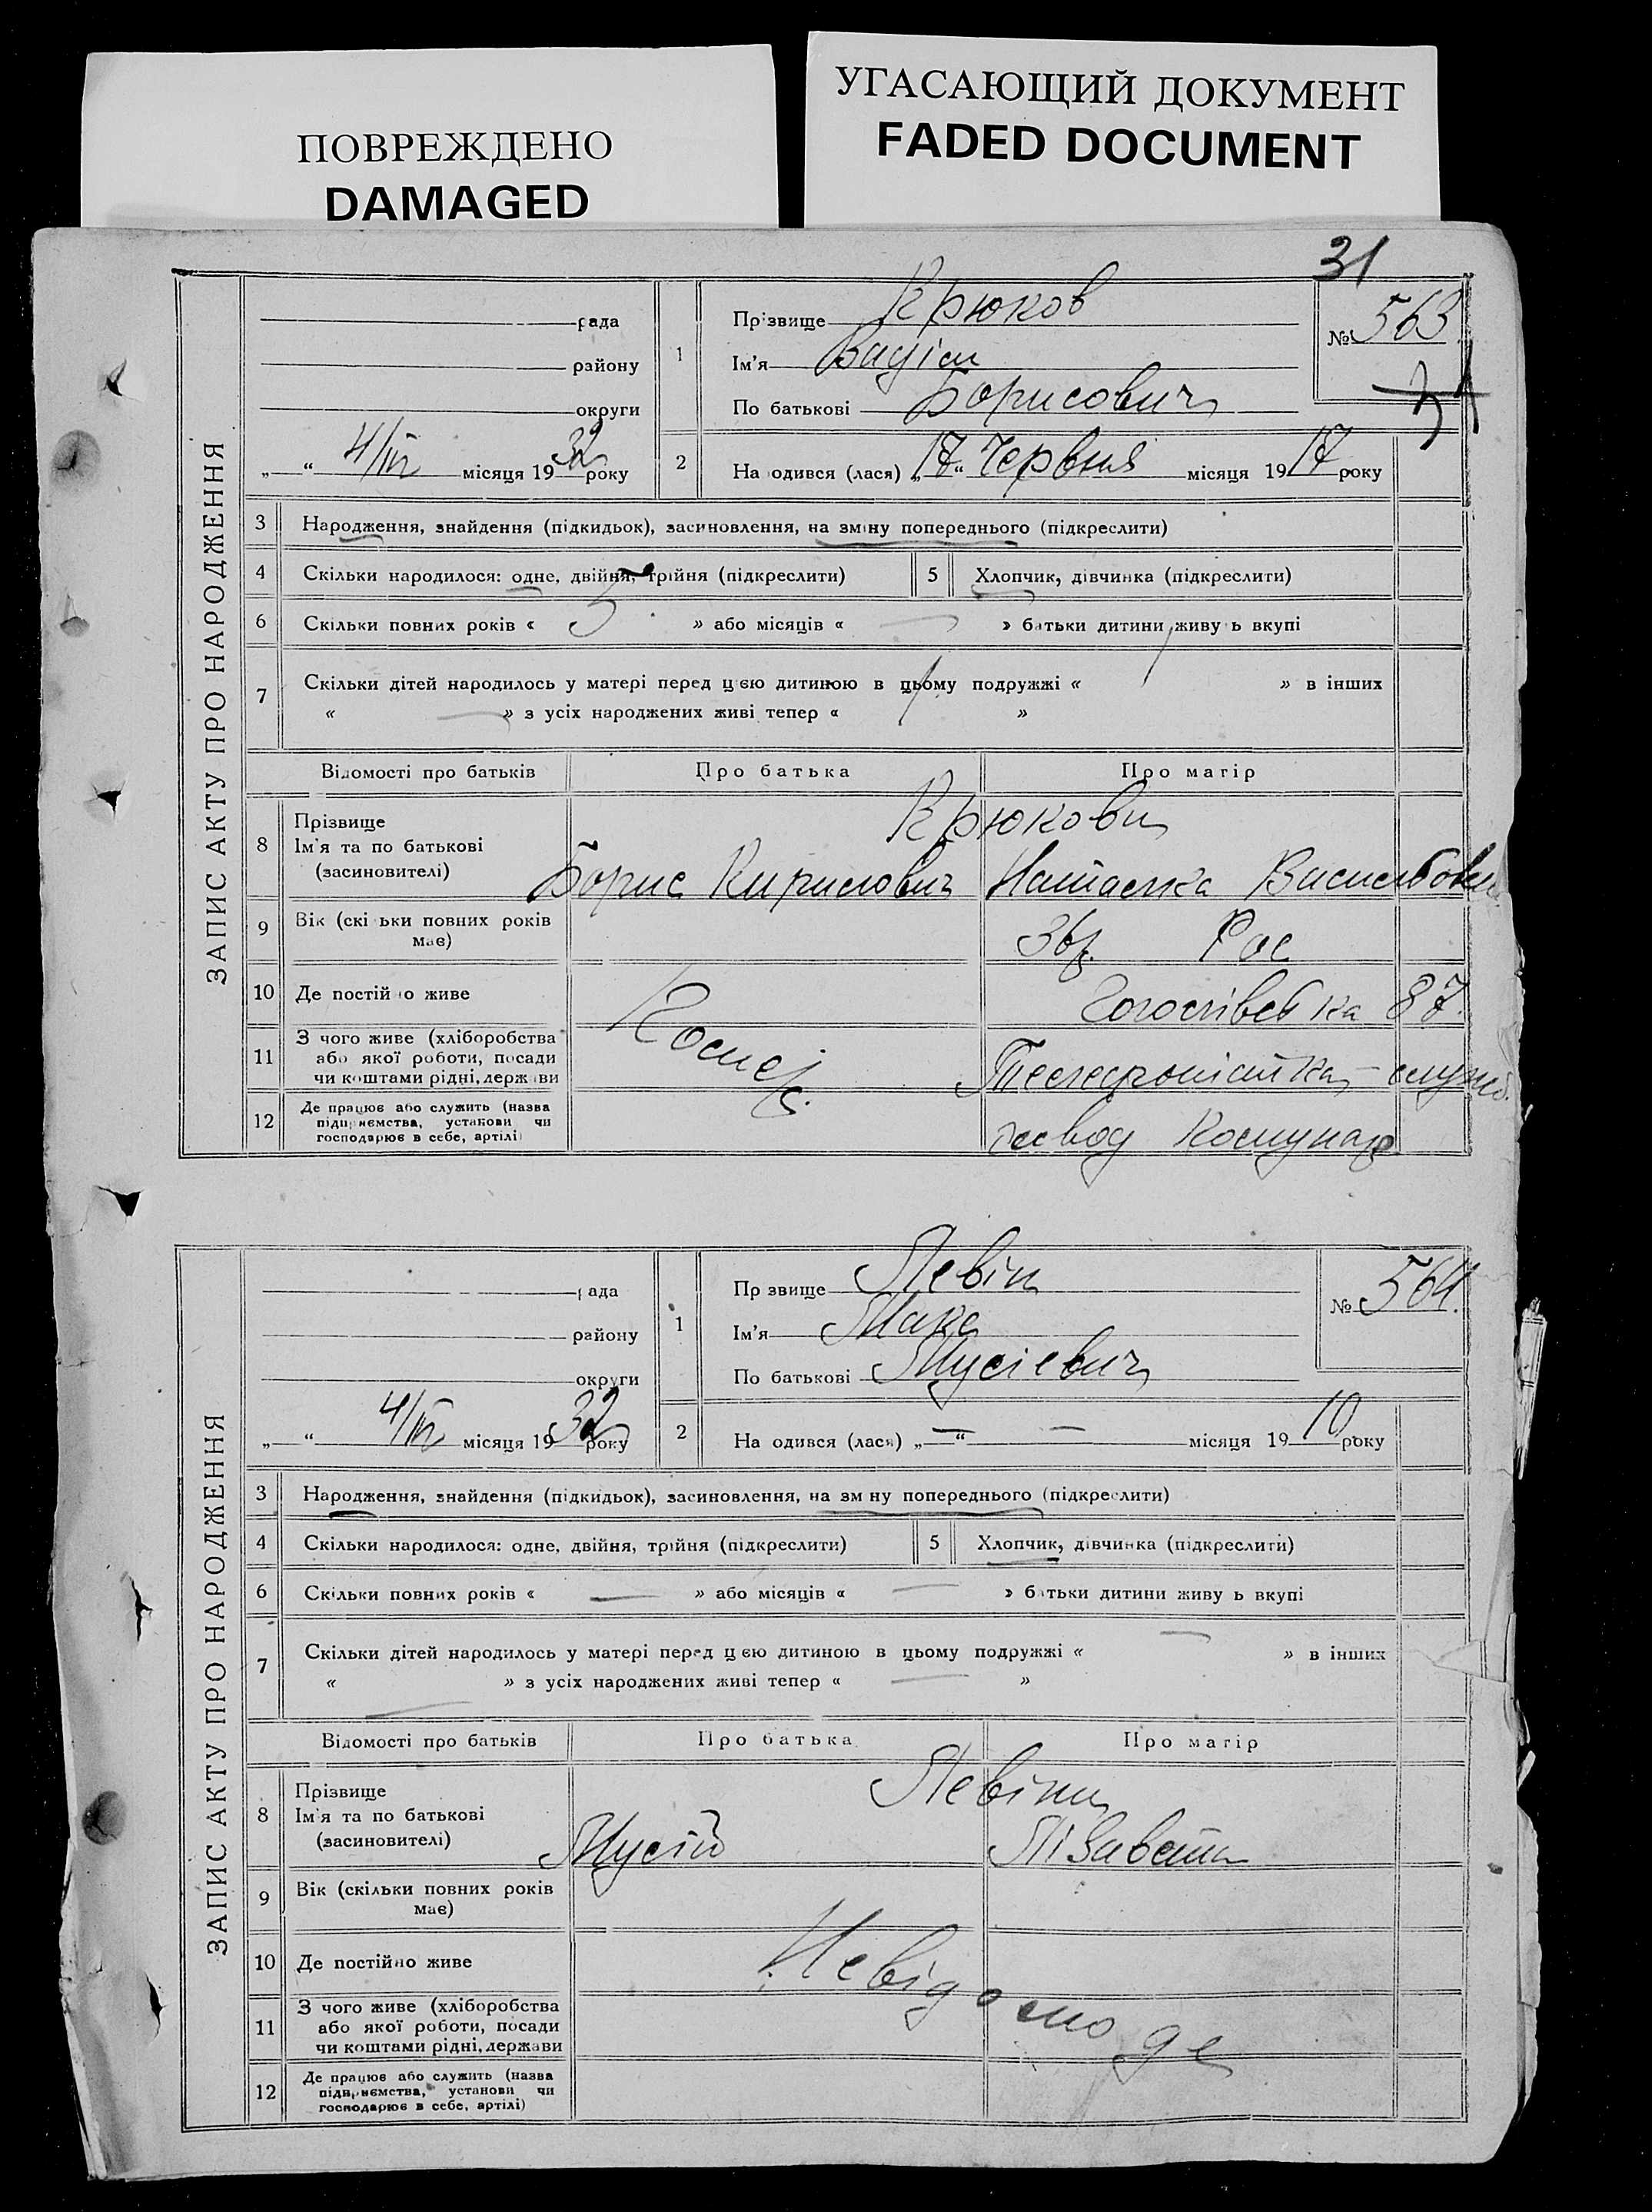 ПОВРЕЖДЕНО
DAMAGED
УГАСАЮЩИЙ ДОКУМЕНТ
FADED DOCUMENT
31
ЗАПИС АКТУ ПРО НАРОДЖЕННЯ
рада
району
округи
„ “ 4/IV місяця 1932 року
1
Прізвище Крюков
Ім'я Вадім
По батькові Борисович
№ 563
31
2
На одився (лася) „17“ Червня місяця 1917 року
3 Народження, знайдення (підкидьок), засиновлення, на зміну попереднього (підкреслити)
4 Скільки народилося: одне, двійня, трійня (підкреслити)
5 Хлопчик, дівчинка (підкреслити)
6 Скільки повних років « 5 » або місяців « — » батьки дитини живу ь вкупі
7 Скільки дітей народилось у матері перед цією дитиною в цьому подружжі « 1 » в інших
« — » з усіх народжених живі тепер « 1 »
Відомості про батьків
Про батька
Про матір
8 Прізвище
Ім'я та по батькові
(засиновителі)
Крюкови
Борис Кирилович
Наталка Васильовн.
9 Вік (скі ьки повних років
має)
Збр. Рос
10 Де постій о живе
Гоголівська 87.
11 З чого живе (хліборобства
або якої роботи, посади
чи коштами рідні, держ ви
Телефоністка, служб.
12 Де працює або служить (назва
підприємства, установи чи
господарює в себе, артілі)
завод Комунар
ЗАПИС АКТУ ПРО НАРОДЖЕННЯ
рада
району
округи
„ “ 4/IV місяця 1932 року
1
Пр звище Левін
Ім'я Марк
По батькові Мусієвич
№ 564.
2
На одився (лася) „—“ — місяця 1910 року
3 Народження, знайдення (підкидьок), засиновлення, на зм ну попереднього (підкреслити)
4 Скільки народилося: одне, двійня, трійня (підкреслити)
5 Хлопчик, дівчинка (підкреслити)
6 Скільки повних років « — » або місяців « — » батьки дитини живу ь вкупі
7 Скільки дітей народилось у матері перед цією дитиною в цьому подружжі « — » в інших
« — » з усіх народжених живі тепер « — »
Відомості про батьків
Про батька
Про матір
8 Прізвище
Ім'я та по батькові
(засиновителі)
Левіни
Мусій
Лізавета
9 Вік (скільки повних років
має)
10 Де постійно живе
Невідомо де
11 З чого живе (хліборобства
або якої роботи, посади
чи коштами рідні, держави
12 Де працює або служить (назва
підприємства, установи чи
господарює в себе, артілі)